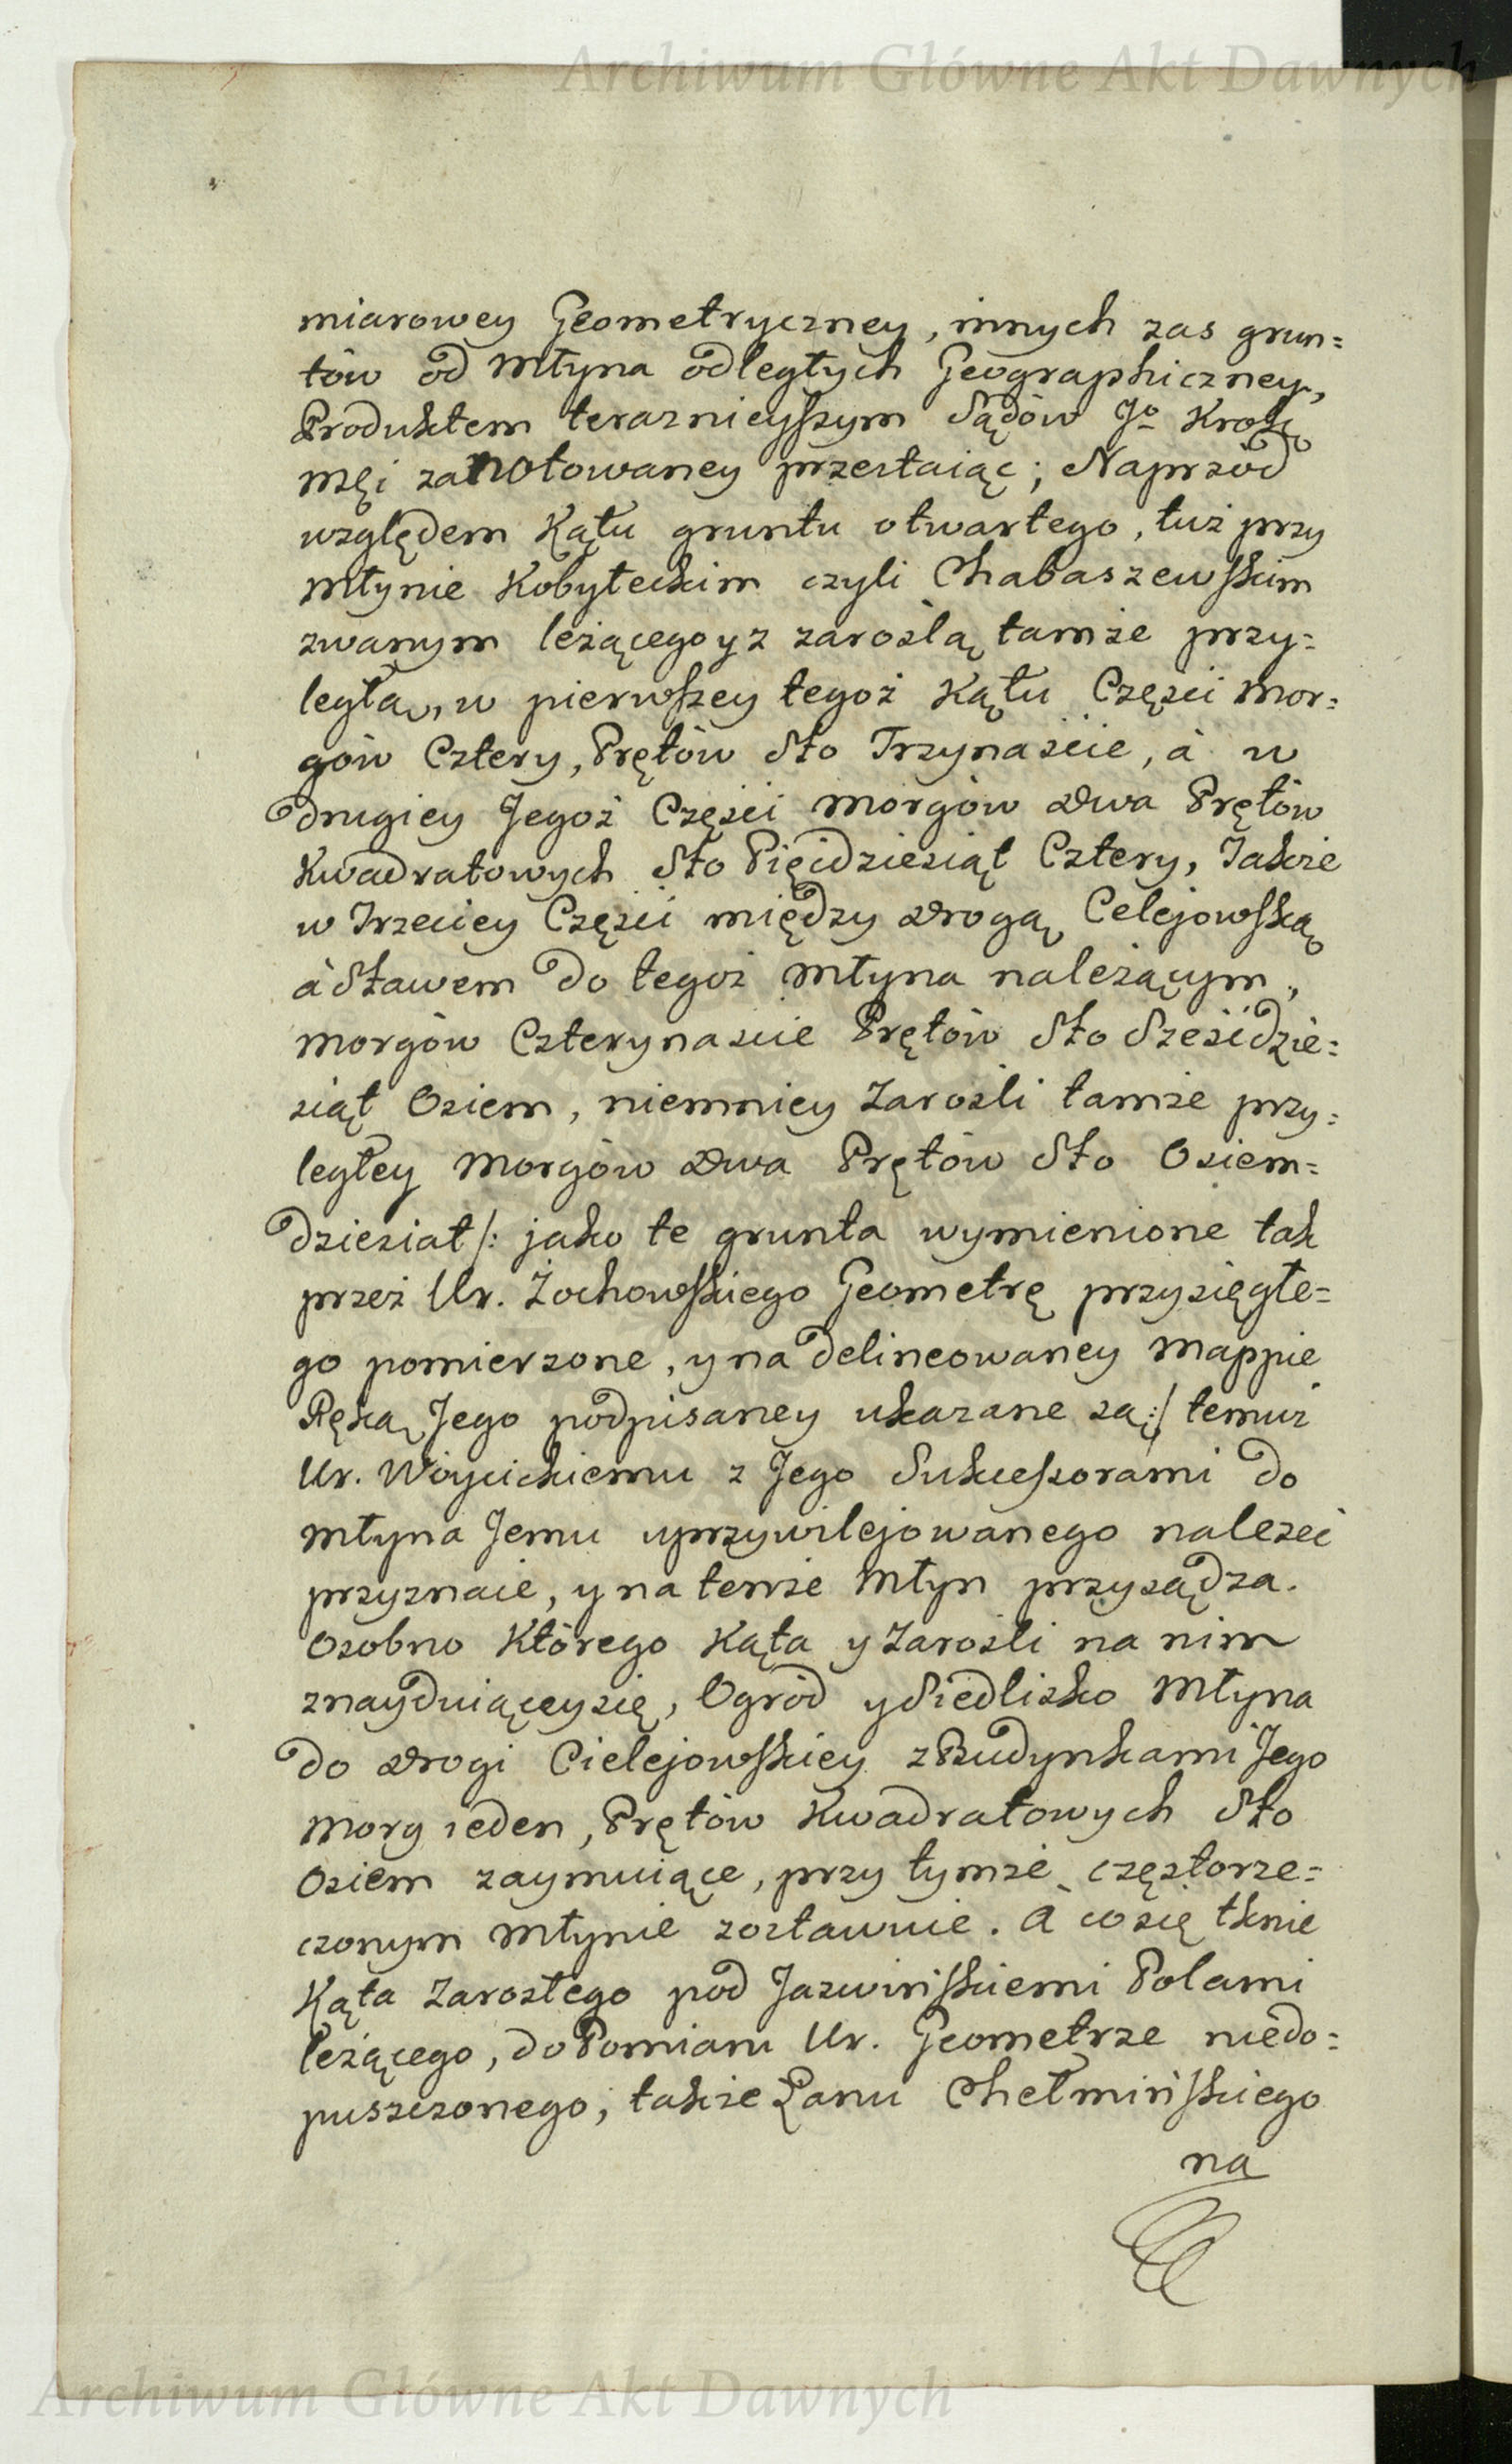 Archiwum Główne Akt Dawnych
miarowey Geometryczney, innych zas grun=
tów od Młyna odległych Geographiczney,
Produktem teraznieyszym Sądów Jo Krolę
mċi zanotowaney przestaiąc; Naprzód
względem Kątu gruntu otwartego, tuż przy
Młynie Kobyłeckim czyli Chabaszewskim
zwanym leżącego y z zaroslą tamże przy=
ległą, w pierwszey tegoż Kątu Częsci Mor=
gów Cztery, Prętów Sto Trzynaście, à w
drugiey Jegoż Częsci Morgów Dwa Prętów
Kwadratowych Sto Pięcdziesiąt Cztery, Także
w Trzeciey Częsci między Drogą Celejowską
à Stawem do tegoż Młyna należącym,
Morgów Czterynascie Prętów Sto Sześcdzie=
siąt Osiem, niemniey Zarośli tamże przy=
ległey Morgów Dwa Prętów Sto Osiem=
dziesiat /: jako te grunta wymienione tak
przez Ur. Żochowskiego Geometrę przysięgłe=
go pomierzone, y na delineowaney Mappie
Ręką Jego podpisaney ukazane są :/ temuż
Ur. Woycickiemu z Jego Sukcessorami do
Młyna Jemu uprzywilejowanego nalezeć
przyznaie, y na tenże Młyn przysądza.
Osobno Którego Kąta y Zarośli na nim
znayduiącey się, Ogród y Siedlisko Młyna
do Drogi Cielejowskiey z Budynkami Jego
Morg ieden, Prętów Kwadratowych Sto
Osiem zaymuiące, przy tymże częstorze=
czonym Młynie zostawuie. A co się tknie
Kąta Zarosłego pod Jazwińskiemi Polami
leżącego, do Pomiaru Ur. Geometrze niedo=
puszczonego, także Łanu Chełmińskiego
na
Archiwum Główne Akt Dawnych